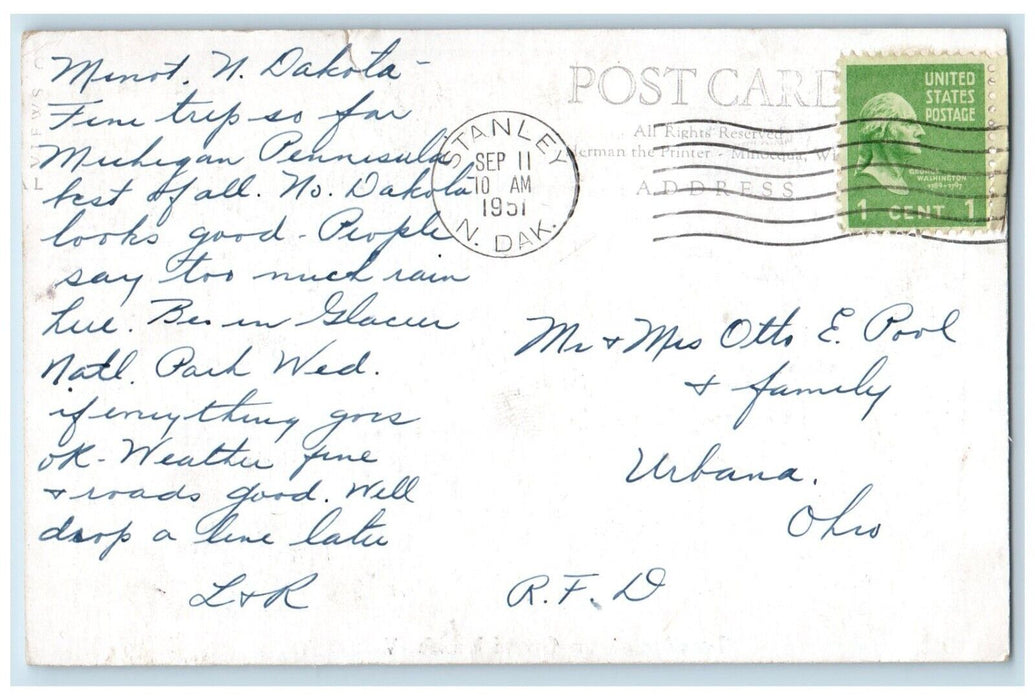 Minot, N. Dakota -
Fine trip so far
Michigan Pennisula
best of all. No. Dakota
looks good - People
say too much rain
here. Be in Glacier
Natl. Park Wed.
if everything goes
OK - Weather fine
& roads good. Will
drop a line later
L & R
POST CARD
All Rights Reserved
Herman the Printer - Minocqua, Wi
ADDRESS
STANLEY
SEP 11
10 AM
1951
N. DAK.
UNITED
STATES
POSTAGE
GEORGE
WASHINGTON
1789-1797
1 CENT 1
Mr & Mrs Otto E. Pool
& family
Urbana.
Ohio
R.F.D
VIEWS